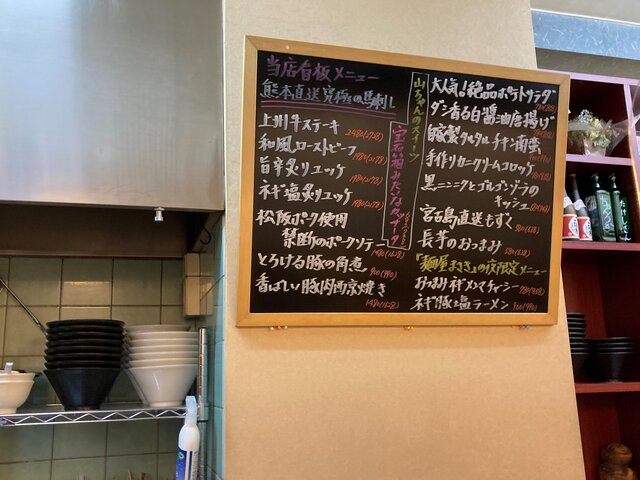 当店看板メニュー
熊本直送究極の馬刺し
上州牛ステーキ 2480(2728)
和風ローストビーフ 1980(2178)
旨辛炙りユッケ 1980(2178)
ネギ塩炙りユッケ 1980(2178)
松阪ポーク使用
禁断のポークソテー 1480(1628)
とろける豚の角煮 900(990)
香ばしい豚肉西京焼き 1480(1628)
山ちゃんのスイーツ
宝石箱みたいな
大気!絶品ポテトサラダ
ダシ香る白醤油唐揚げ
自家製タルタルチキン南蛮
手作りカニクリームコロッケ
黒ニンニクとゴルゴンゾーラの
キッシュ
宮古島直送もずく 580(638)
長芋のおつまみ 580(638)
「麺屋まさき」の夜限定メニュー
おつまみネギメンマチャーシュー 780(858)
ネギ豚塩ラーメン 900(990)